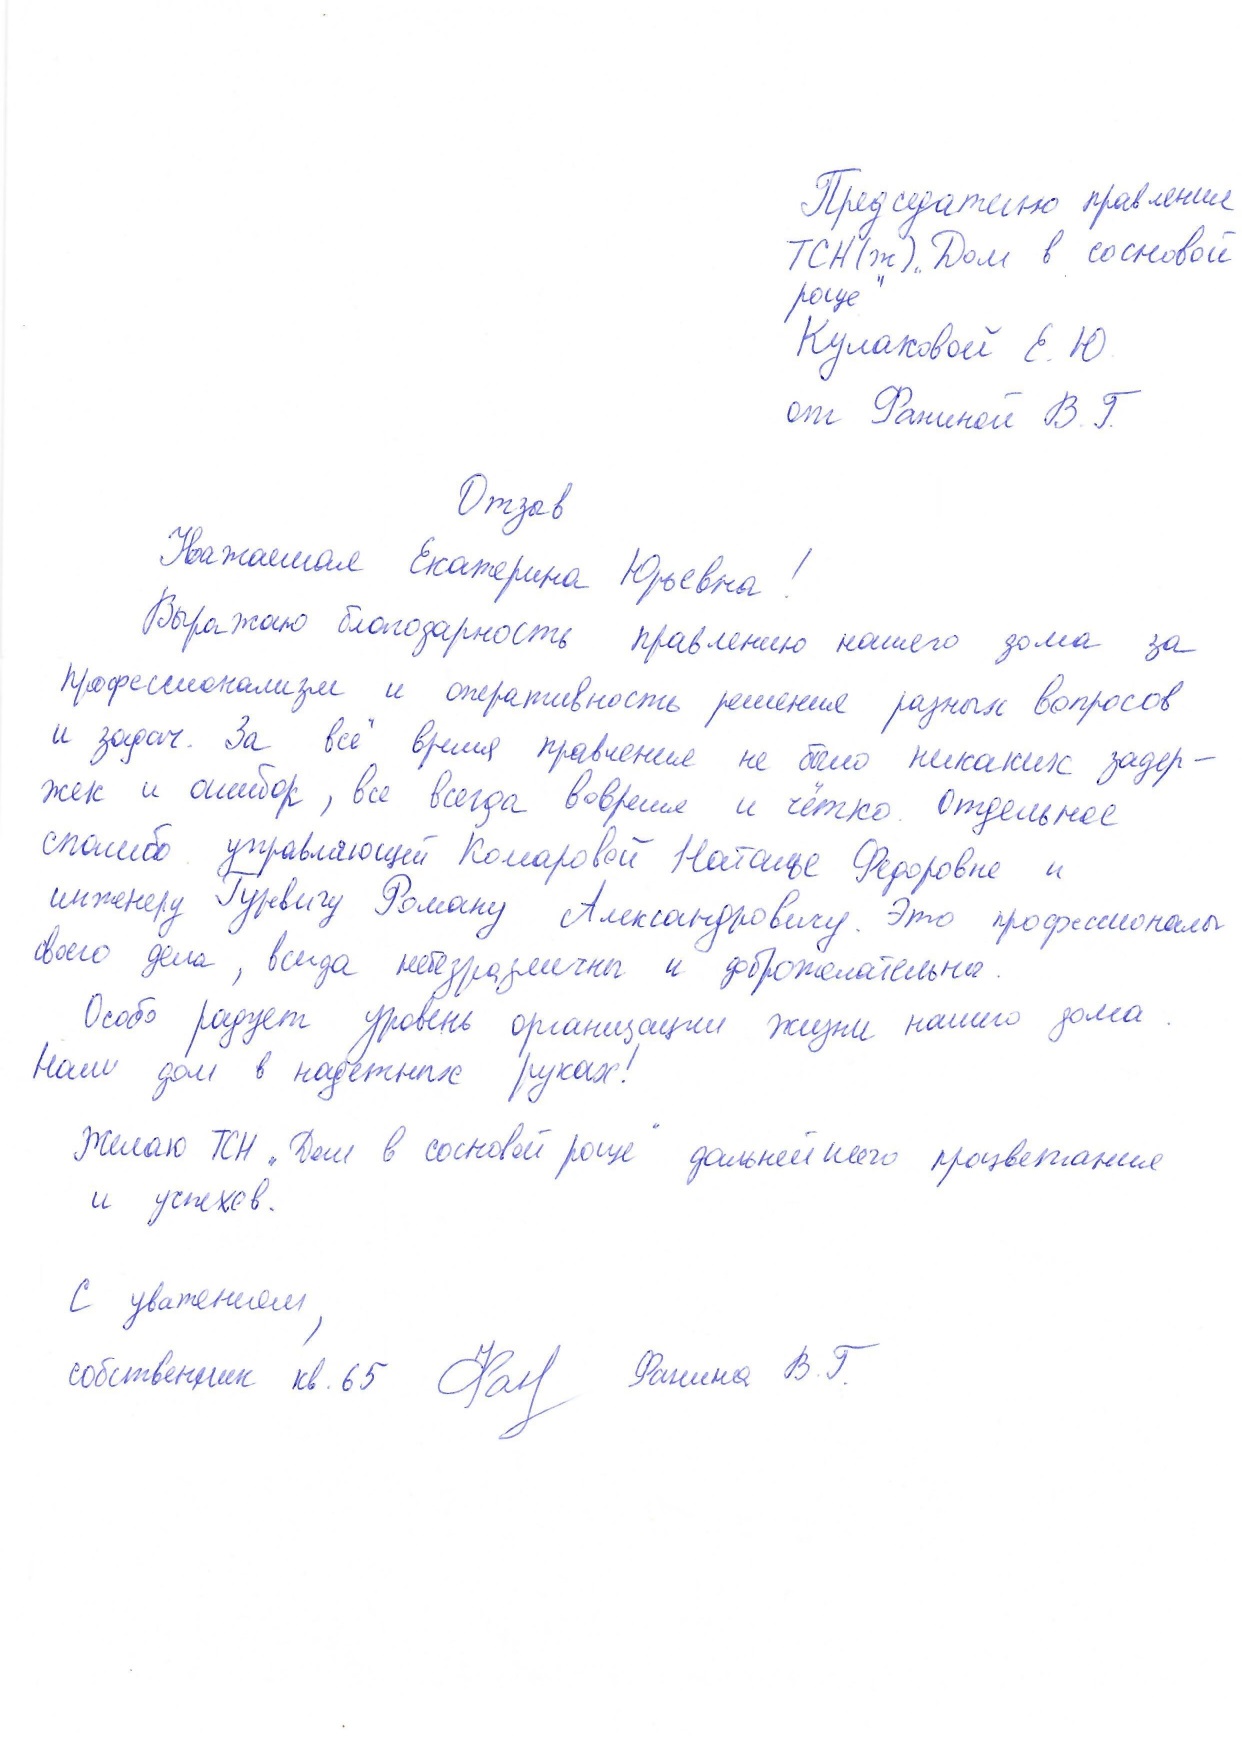 Председателю правления
ТСН(ж) „Дом в сосновой
роще"
Кулаковой Е.Ю.
от Фаниной В.Г.
Отзыв
Уважаемая Екатерина Юрьевна!
Выражаю благодарность правлению нашего дома за
профессионализм и оперативность решения разных вопросов
и задач. За всё время правления не было никаких задер-
жек и ошибок, все всегда вовремя и чётко. Отдельное
спасибо управляющей Комаровой Наталье Федоровне и
инженеру Гуревичу Роману Александровичу. Это профессионалы
своего дела, всегда небезразличны и доброжелательны.
Особо радует уровень организации жизни нашего дома.
Наш дом в надежных руках!
Желаю ТСН „Дом в сосновой роще" дальнейшего процветания
и успехов.
С уважением,
собственник кв.65 Фанина В.Г.